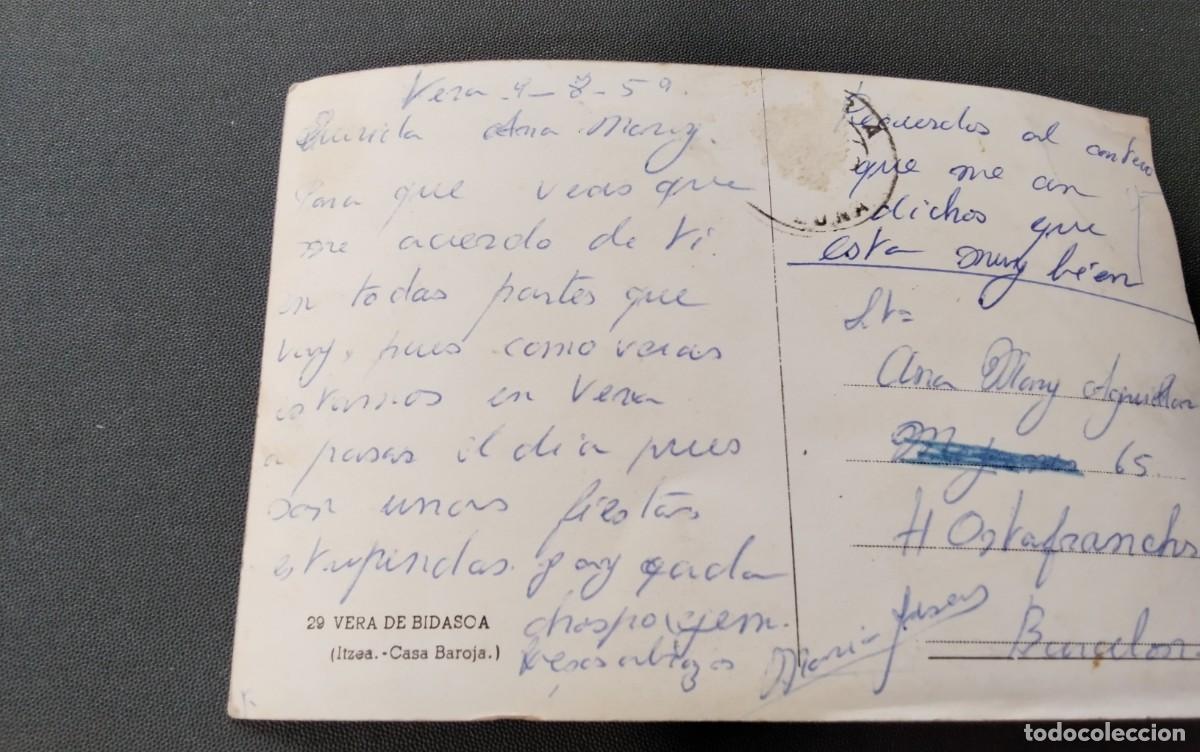 Vera 9-8-59.
Querida Ana Mary.
Para que veas que
me acuerdo de ti
en todas partes que
voy, pues como veras
estamos en Vera
a pasar el dia pues
son unas fiestas
estupendas y ay cada
Besos abrazos
Maria Jesus
29 VERA DE BIDASOA
(Itzea.-Casa Baroja.)
Recuerdos al
que me an
dichos que
esta muy bien
Sta
Ana Mary Aguilar
65
Hostafranchs
Barcelon
todocoleccion